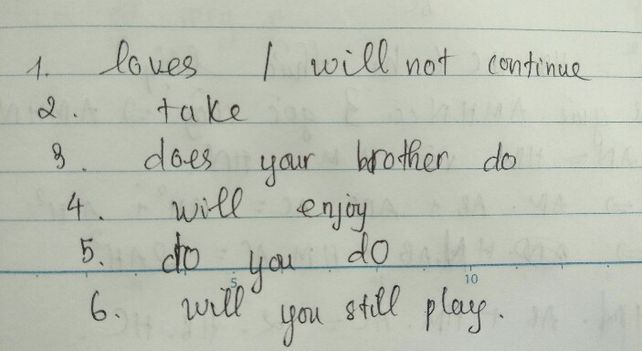 1. loves / will not continue
2. take
3. does your brother do
4. will enjoy
5. do you do
5 10
6. will you still play.